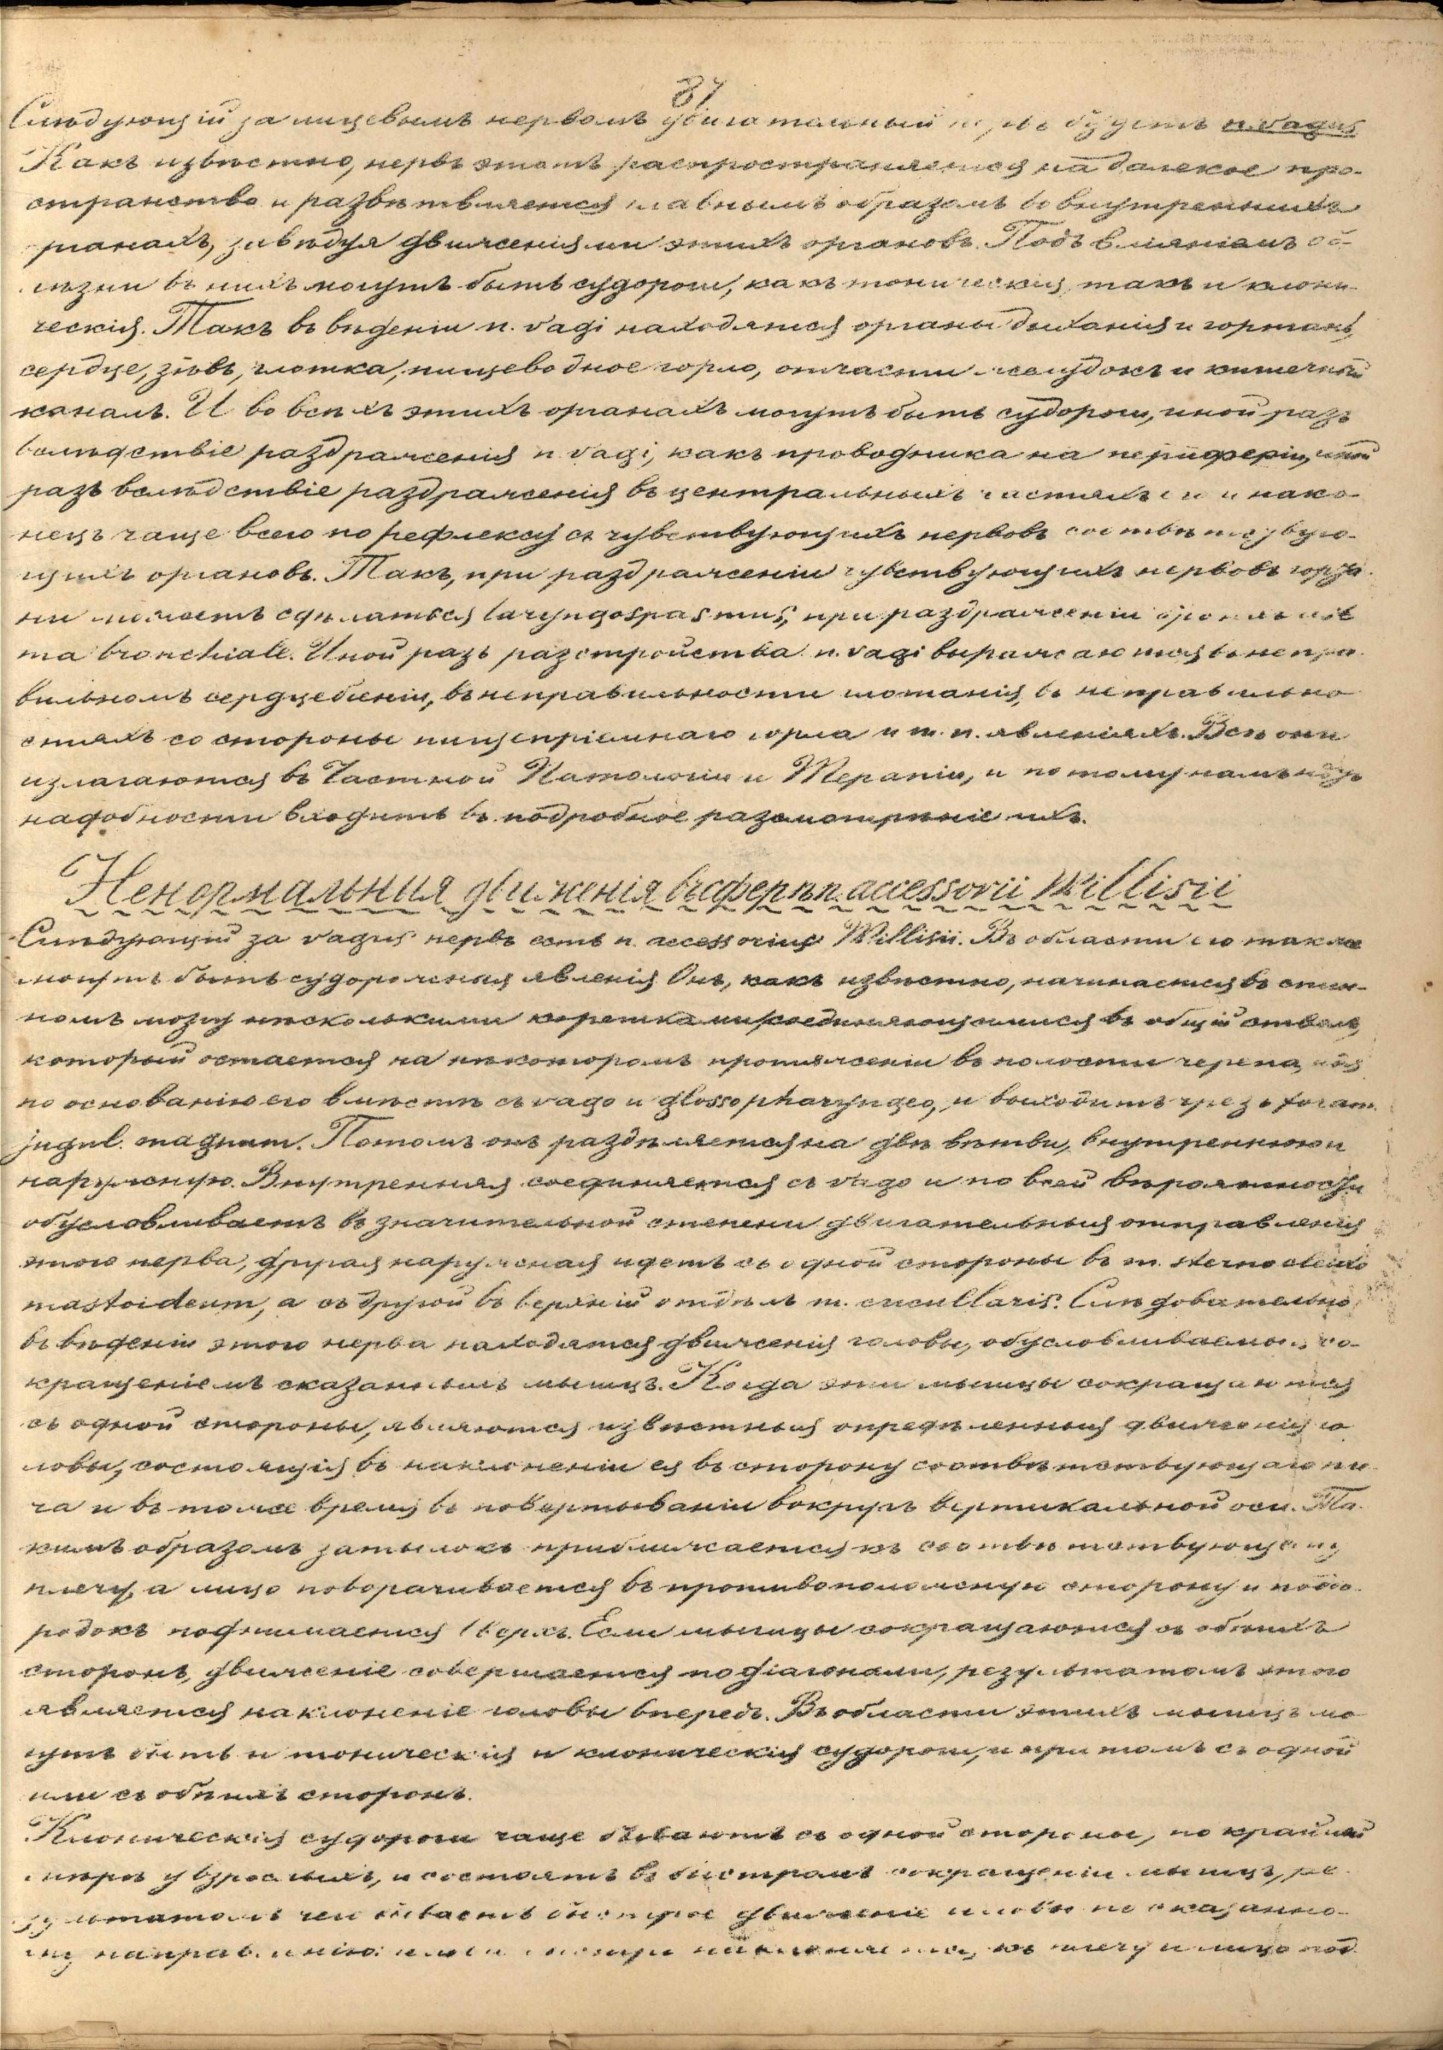 87
Слѣдующій за лицевымъ нервомъ двигательный нервъ будетъ n. vagus
Какъ извѣстно, нервъ этотъ распространяется на далекое про-
странство и развѣтвляется главнымъ образомъ въ внутреннихъ
органахъ, завѣдуя движеніями этихъ органовъ. Подъ вліяніемъ бо-
лѣзни въ нихъ могутъ быть судороги, какъ тоническія, такъ и клони-
ческія. Такъ въ вѣденіи n. vagi находятся органы дыханія и гортань,
сердце, зѣвъ, глотка, пищеводное горло, отчасти желудокъ и кишечный
каналъ. И во всѣхъ этихъ органахъ могутъ быть судороги, иной разъ
вслѣдствіе раздраженія n. vagi, какъ проводника на периферіи, иной
разъ вслѣдствіе раздраженія въ центральныхъ частяхъ его и нако-
нецъ чаще всего по рефлексу съ чувствующихъ нервовъ соотвѣтствую-
щихъ органовъ. Такъ, при раздраженіи чувствующихъ нервовъ горта-
ни можетъ сдѣлаться laryngospasmus, при раздраженіи бронховъ аст-
ma bronchiale. Иной разъ разстройства n. vagi выражаются въ непра-
вильномъ сердцебіеніи, въ неправильности глотанія, въ неправильно-
стяхъ со стороны пищепріемнаго горла и т. п. явленіяхъ. Всѣ они
излагаются въ Частной Патологіи и Терапіи, и потому намъ нѣтъ
надобности входить въ подробное разсмотрѣніе ихъ.
Ненормальныя движенія въ сферѣ n. accessorii Willisii
Слѣдующій за vagus нервъ есть n. accessorius Willisii. Въ области его также
могутъ быть судорожныя явленія. Онъ, какъ извѣстно, начинается въ спин-
номъ мозгу нѣсколькими корешками, соединяющимися въ общій стволъ,
который остается на нѣкоторомъ протяженіи въ полости черепа, идя
по основанію его вмѣстѣ съ vago и glossopharyngeo, и выходитъ чрезъ foram.
jugul. magnum. Потомъ онъ раздѣляется на двѣ вѣтви, внутреннюю и
наружную. Внутренняя соединяется съ vago и по всей вѣроятности
обусловливаетъ въ значительной степени двигательныя отправленія
этого нерва, другая наружная идетъ съ одной стороны въ m. sterno cleido
mastoideum, а съ другой въ верхній отдѣлъ m. cucullaris. Слѣдовательно
въ вѣденіи этого нерва находятся движенія головы, обусловливаемыя со-
кращеніемъ сказанныхъ мышцъ. Когда эти мышцы сокращаются
съ одной стороны, являются извѣстныя опредѣленныя движенія го
ловы, состоящія въ наклоненіи ея въ сторону соотвѣтствующаго пле-
ча и въ тоже время въ повертываніи вокругъ вертикальной оси. Та-
кимъ образомъ затылокъ приближается къ соотвѣтствующему
плечу, а лицо поворачивается въ противоположную сторону и подбо-
родокъ поднимается вверхъ. Если мышцы сокращаются съ обѣихъ
сторонъ, движеніе совершается по діагонали, результатомъ этого
является наклоненіе головы впередъ. Въ области этихъ мышцъ мо
гутъ быть и тоническія и клоническія судороги, и при томъ съ одной
или съ обѣихъ сторонъ.
Клоническія судороги чаще бываютъ съ одной стороны, по крайней
мѣрѣ у взрослыхъ, и состоятъ въ быстромъ сокращеніи мышцъ, ре-
зультатомъ чего бываетъ быстрое движеніе головы по сказанно-
му направленію: къ плечу и лицо под